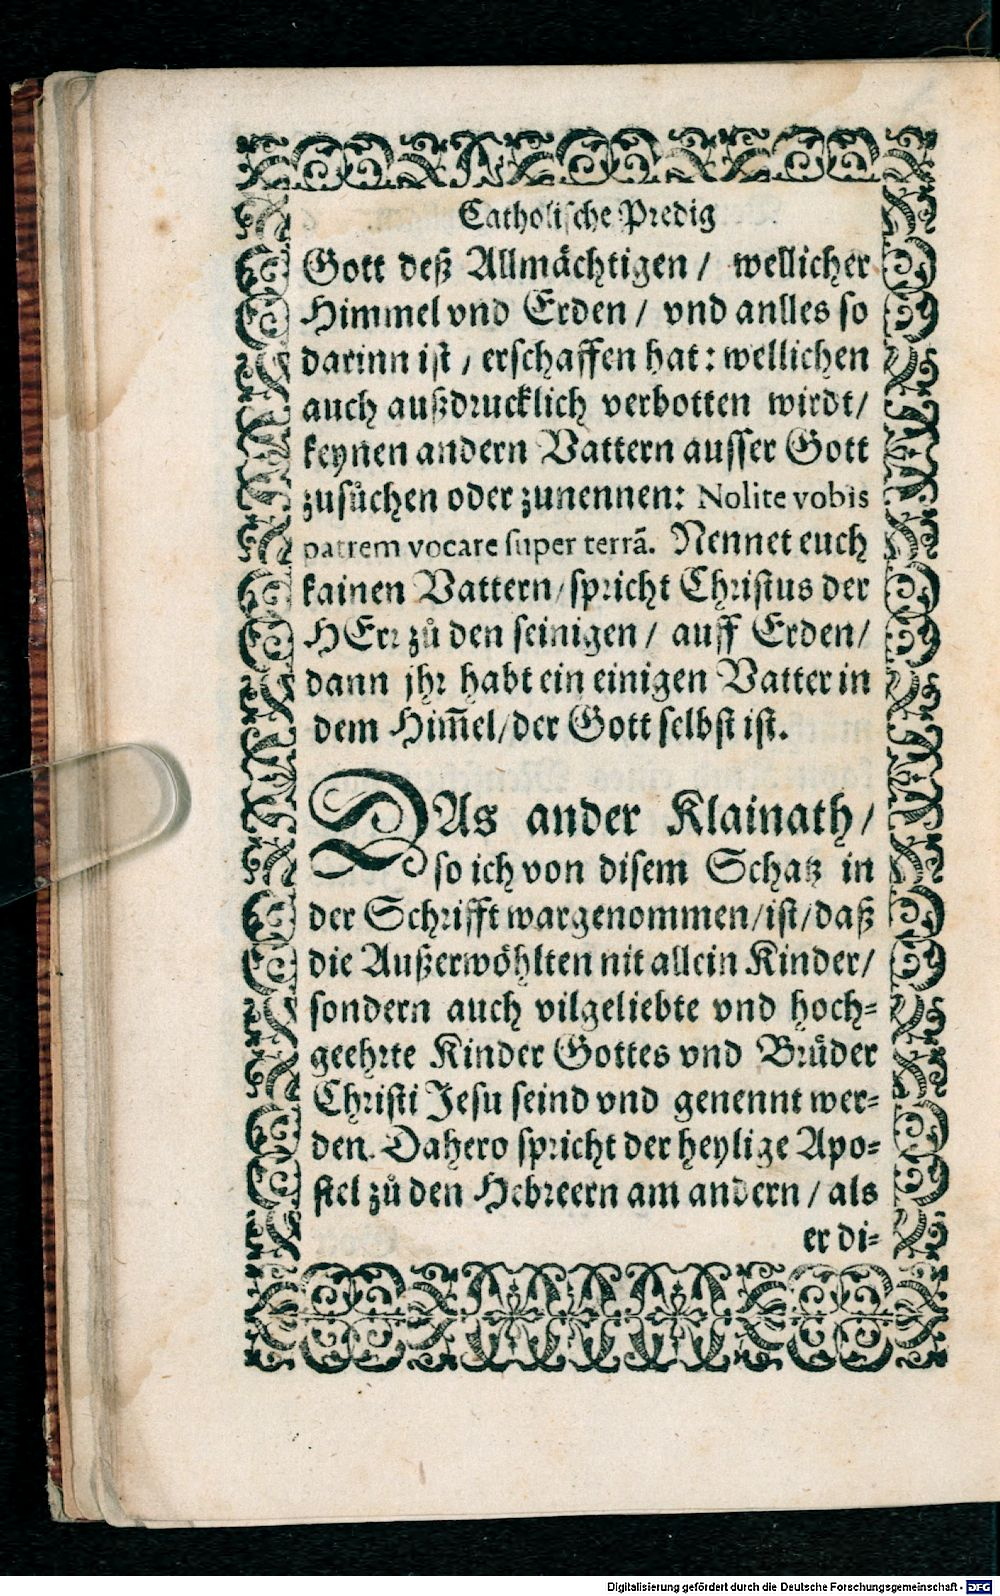 Catholische Predig
Gott deß Allmächtigen / wellicher
Himmel vnd Erden / vnd anlles so
darinn ist / erschaffen hat: wellichen
auch außdrucklich verbotten wirdt/
keynen andern Vattern ausser Gott
zusůchen oder zunennen: Nolite vobis
patrem vocare super terrã. Nennet euch
kainen Vattern/spricht Christus der
HErr zů den seinigen / auff Erden/
dann jhr habt ein einigen Vatter in
dem Him̃el/der Gott selbst ist.
DAs ander Klainath/
so ich von disem Schatz in
der Schrifft wargenommen/ist/daß
die Außerwöhlten nit allein Kinder/
sondern auch vilgeliebte vnd hoch-
geehrte Kinder Gottes vnd Brüder
Christi Jesu seind vnd genennt wer-
den. Dahero spricht der heylige Apo-
stel zů den Hebreern am andern / als
er di-
Digitalisierung gefördert durch die Deutsche Forschungsgemeinschaft - DFG